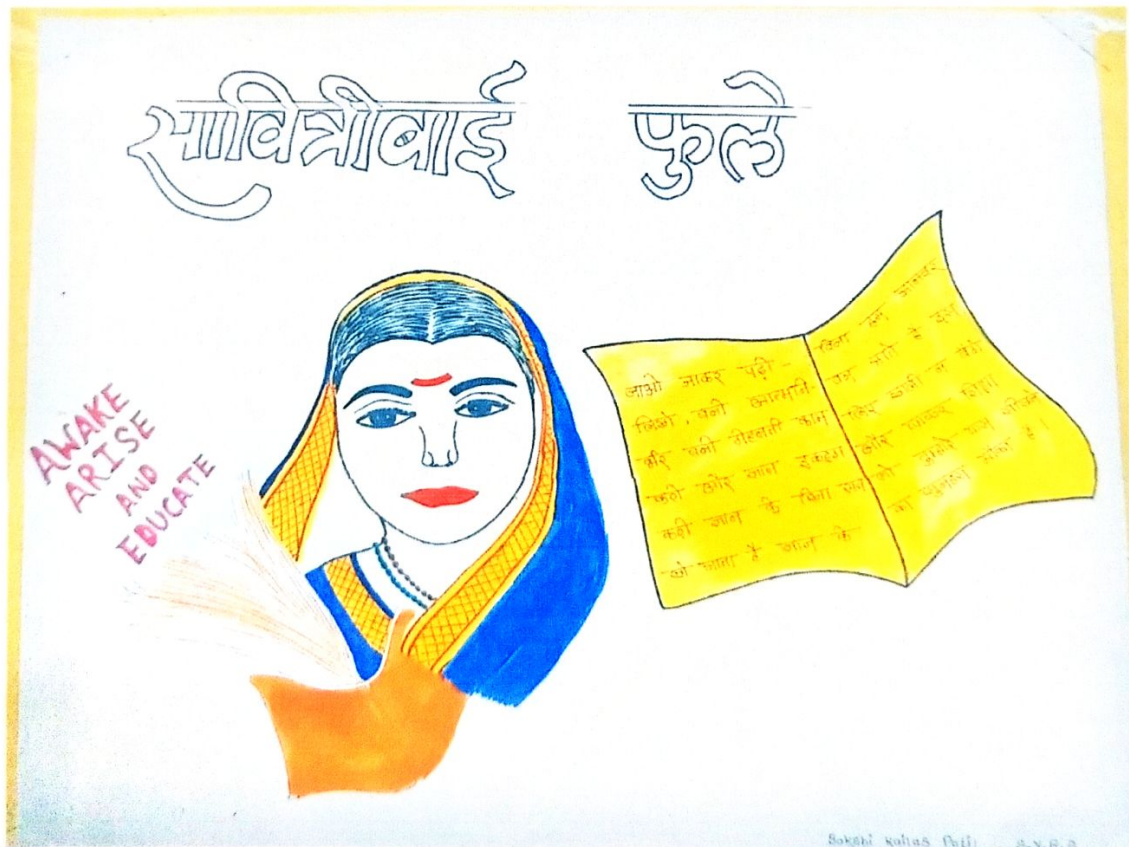 सावित्रीबाई फुले
AWAKE
ARISE
AND
EDUCATE
जाओ जाकर पढ़ो -
लिखो, बनो आत्मनि-
र्भर बनो मेहनती काम
करो और ज्ञान इकट्ठा
करो ज्ञान के बिना सब
खो जाता है ज्ञान के
बिना हम जानवर
बन जाते है इस
लिए खाली ना बैठो
और जाकर शिक्षा
लो
का सुनहरा मौका है।
Sakshi Kailas Patil